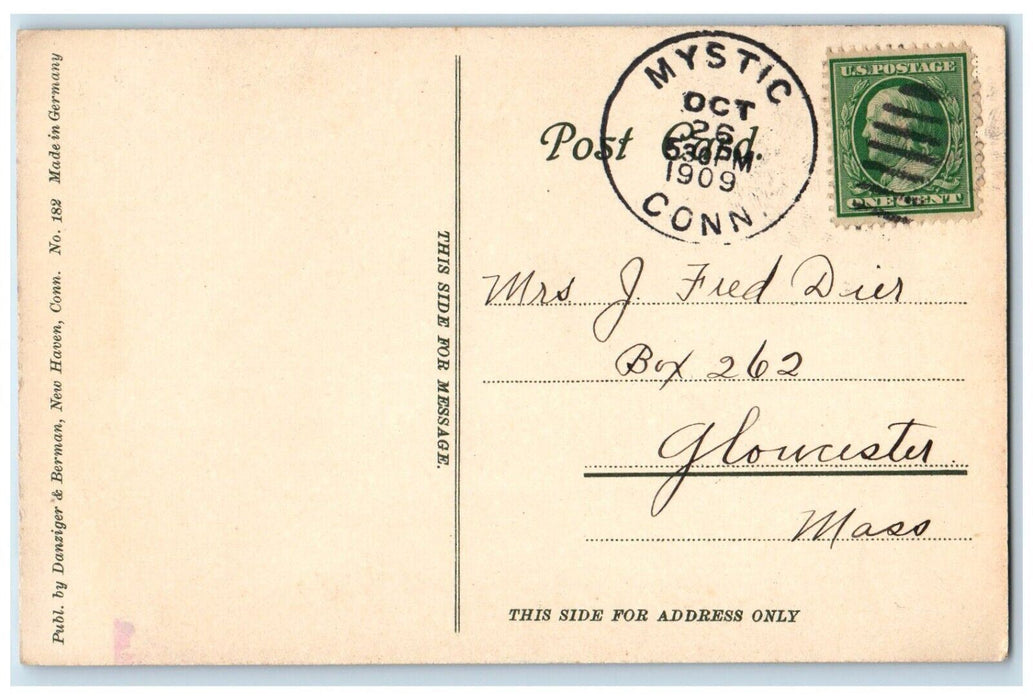 Publ. by Danziger & Berman, New Haven, Conn. No. 182 Made in Germany
THIS SIDE FOR MESSAGE.
Post Card.
MYSTIC
OCT
26
530PM
1909
CONN.
U.S. POSTAGE
ONE CENT
Mrs. J. Fred Dier
Box 262
Gloucester
Mass
THIS SIDE FOR ADDRESS ONLY